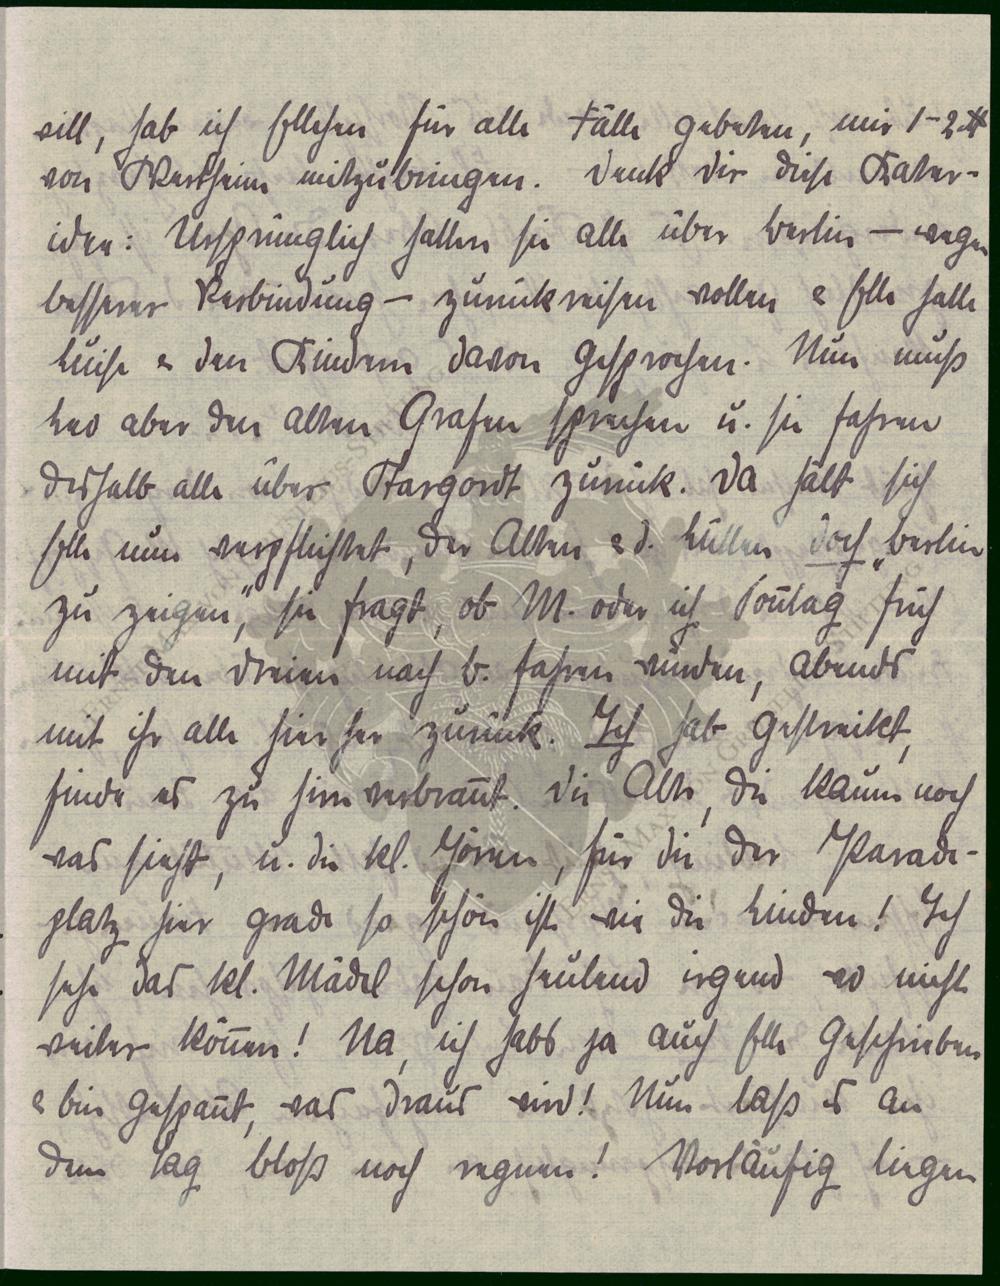 will, hab ich Ellchen für alle Fälle gebeten, mir 1-2 ℔
von Wertheim mitzubringen. Denk Dir diese Kater-
idee: Ursprünglich hatten sie alle über Berlin – wegen
besserer Verbindung – zurückreisen wollen & Elle hatte
Luise & den Kindern davon gesprochen. Nun muß
Leo aber den alten Grafen sprechen u. sie fahren
deshalb alle über Stargordt zurück. Da hält sich
Elle nun verpflichtet, der Alten & d. Lütten doch „Berlin
zu zeigen", sie fragt, ob M. oder ich Sonntag früh
mit den dreien nach B. fahren würden, abends
mit ihr alle hierher zurück. Ich hab gestreikt,
finde es zu hirnverbrannt. Die Alte, die kaum noch
was sieht, u. die kl. Jören, für die der Parade-
platz hier grade so schön ist wie die Linden! Ich
sehe das kl. Mädel schon heulend irgend wo nicht
weiter können! Na, ich habs ja auch Elle geschrieben
& bin gespannt, was draus wird! Nun laß es an
dem Tag bloß noch regnen! Vorläufig liegen